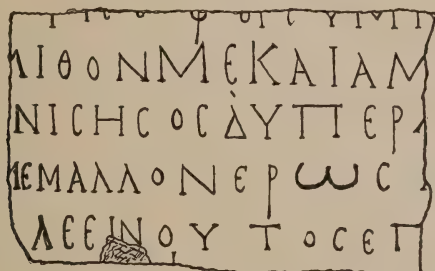 ΛΙΘΟΝΜΕΚΑΙΑΜ
ΝΙϹΗϹΟϹΔΥΠΕΡ
ΜΕΜΑΛΛΟΝΕΡΩϹ
ΛΕΕΙΝΟΥΤΟϹΕΠ